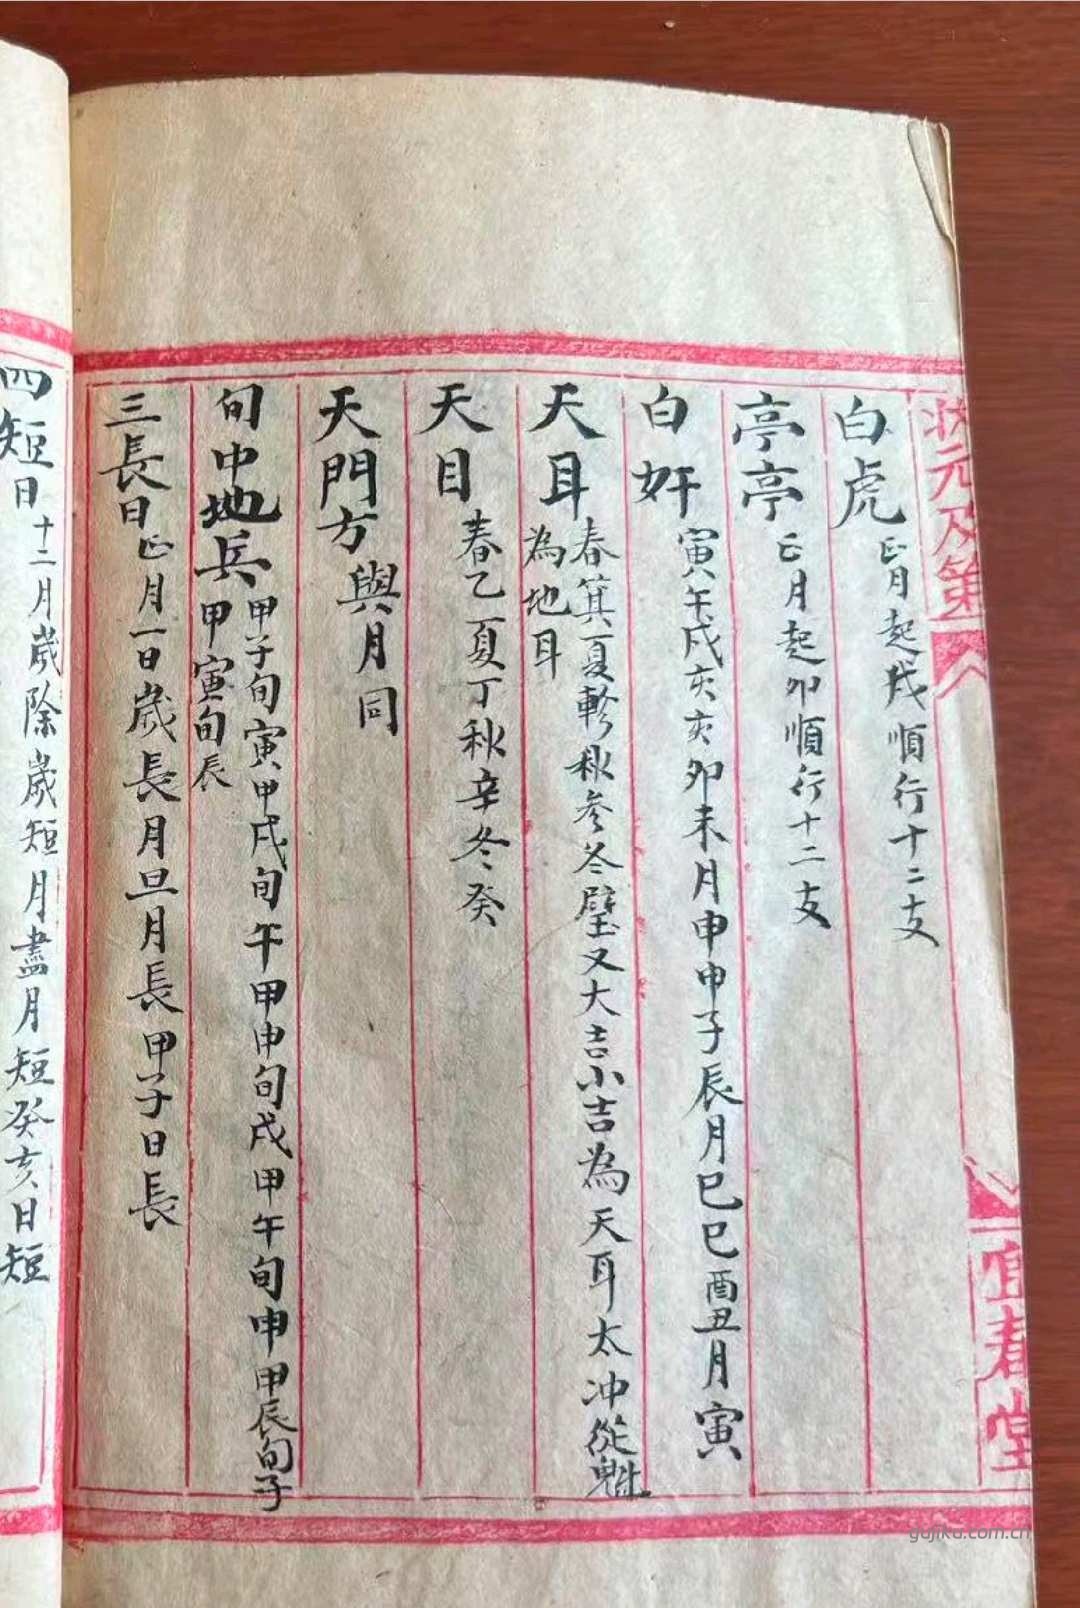 状元及第
宜春堂
白虎 正月起戌順行十二支
亭亭 正月起卯順行十二支
白奸 寅午戌亥亥卯未月申申子辰月巳巳酉丑月寅
天耳 春箕夏軫秋参冬壁又大吉小吉為天耳太冲從魁
為地耳
天目 春乙夏丁秋辛冬癸
天門方 與月同
旬中地兵 甲子旬寅甲戌旬午甲申旬戌甲午旬申甲辰旬子
甲寅旬辰
三長日 正月一日歲長月旦月長甲子日長
四短日 十二月歲除歲短月盡月短癸亥日短
gujiku.com.cn